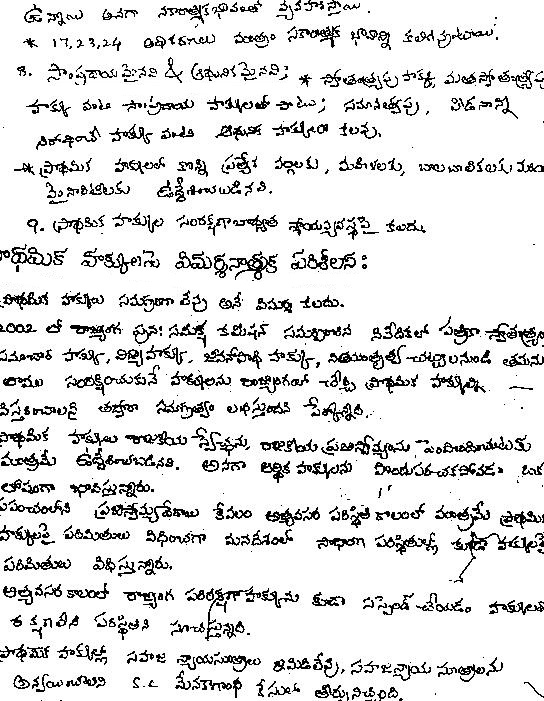 ఉన్నాయి అనగా నకారాత్మక భావంతో వ్యవహరిస్తాయి.
* 17,23,24 అధికరణలు మాత్రం సకారాత్మక భావాన్ని కలిగి వుంటాయి.
8. సాంప్రదాయమైనవి & ఆధునికమైనవి; * స్వాతంత్ర్యపు హక్కు, మతస్వాతంత్ర్యపు
హక్కు వంటి సాంప్రదాయ హక్కులతో పాటు; సమానత్వపు, పీడనాన్ని
నిరోధించే హక్కు వంటి ఆధునిక హక్కులు కలవు.
→* ప్రాథమిక హక్కులలో కొన్ని ప్రత్యేక వర్గాలకు, మహిళలకు, బాలబాలికలకు
మైనారిటీలకు ఉద్దేశించబడినవి.
9. ప్రాథమిక హక్కుల సంరక్షణా బాధ్యత న్యాయవ్యవస్థపై కలదు.
ప్రాథమిక హక్కులను విమర్శనాత్మక పరిశీలన:
ప్రాథమిక హక్కులు సమగ్రంగా లేవు అనే విమర్శ కలదు.
2002 లో రాజ్యాంగ పునః సమీక్ష కమిషన్ సమర్పించిన నివేదికలో పత్రికా స్వాతంత్ర్యం
సమాచార హక్కు, విద్యాహక్కు, జీవనోపాధి హక్కు, నియంతృత్వ చట్టాలనుండి తమను
తాము సంరక్షించుకునే హక్కులను రాజ్యాంగంలో చేర్చి ప్రాథమిక హక్కుల్ని
విస్తరించాలని తద్వారా సమగ్రత్వం లభిస్తుందని పేర్కొన్నది.
ప్రాథమిక హక్కులు రాజకీయ స్వేచ్ఛను, రాజకీయ ప్రజాస్వామ్యంను పెంపొందించుటకు
మాత్రమే ఉద్దేశించబడినవి. అనగా ఆర్థిక హక్కులను పొందుపరచకపోవడం ఒక
లోపంగా భావిస్తున్నారు.
ప్రపంచంలోని ప్రజాస్వామ్యదేశాలు కేవలం అత్యవసర పరిస్థితి కాలంలో మాత్రమే ప్రాథమిక
హక్కులపై పరిమితులు విధించగా మనదేశంలో సాధారణ పరిస్థితుల్లో కూడా హక్కులపై
పరిమితులు విధిస్తున్నారు.
అత్యవసర కాలంలో రాజ్యాంగ పరిరక్షణా హక్కును కూడా సస్పెండ్ చేయడం హక్కులకు
రక్షణలేని పరిస్థితిని సూచిస్తున్నది.
ప్రాథమిక హక్కుల్లో సహజ న్యాయసూత్రాలు ఇమిడిలేవు, సహజన్యాయ సూత్రాలను
అన్వయించాలని S.C మేనకాగాంధీ కేసులో తీర్పునిచ్చింది.